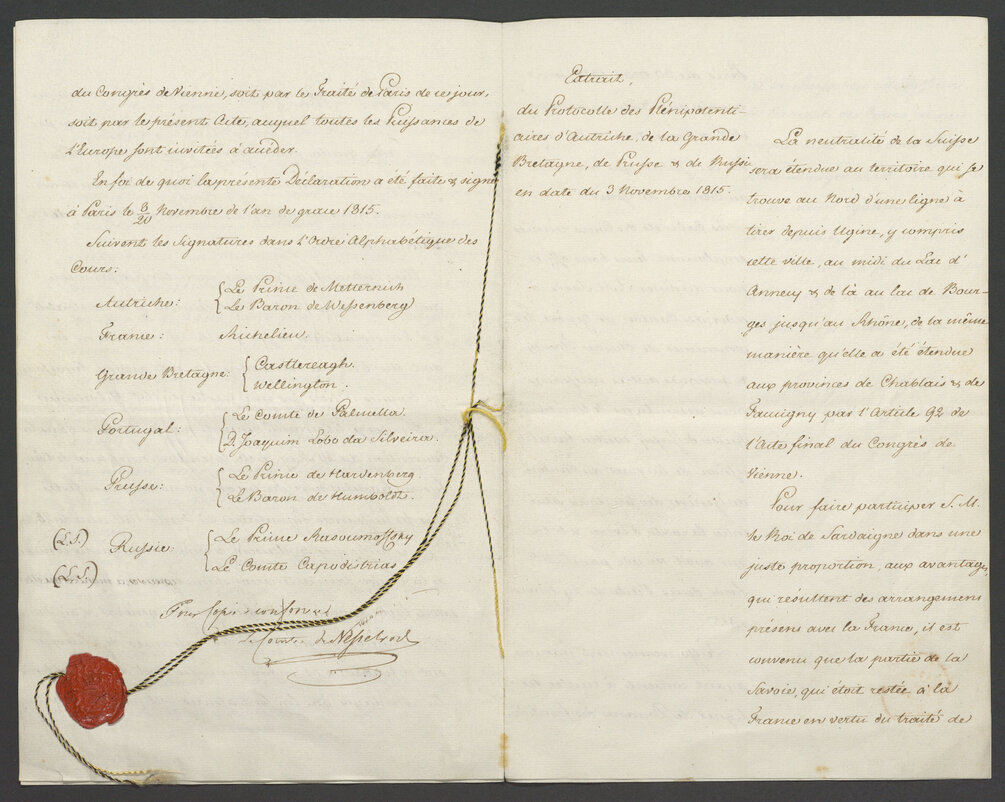 du Congrès de Vienne, soit par le Traité de Paris de ce jour,
soit par le présent Acte, auquel toutes les Puissances de
l'Europe sont invitées à accéder.
En foi de quoi la présente Déclaration a été faite & signé
à Paris le 8/20 Novembre de l'an de grace 1815.
Suivent les Signatures dans l'Ordre Alphabétique des
Cours:
Autriche: { Le Prince de Metternich
Le Baron de Wessenberg
France: Richelieu.
Grande Bretagne: { Castlereagh.
Wellington.
Portugal: { Le Comte de Palmella.
D. Joaquim Lobo da Silveira.
Prusse: { Le Prince de Hardenberg.
Le Baron de Humboldt.
(L.S.) Russie: { Le Prince Rasoumoffsky
(L.S.) Le Comte Capodistrias
Pour Copie conforme
Le Comte de Nesselrode
Extrait.
du Protocolle des Plénipotenti-
aires d'Autriche, de la Grande
Bretagne, de Prusse & de Russi
en date du 3 Novembre 1815.
La neutralité de la Suisse
sera étendue au territoire qui se
trouve au Nord d'une ligne à
tirer depuis Ugine, y compris
cette ville, au midi du Lac d'
Annecy & de là au lac de Bour-
ges jusqu'au Rhône, de la même
manière qu'elle a été étendue
aux provinces de Chablais & de
Faucigny par l'Article 92 de
l'Acte final du Congrès de
Vienne.
Pour faire participer S. M.
le Roi de Sardaigne dans une
juste proportion, aux avantages,
qui résultent des arrangemens
présens avec la France, il est
convenu que la partie de la
Savoie, qui étoit restée à la
France en vertu du traité de